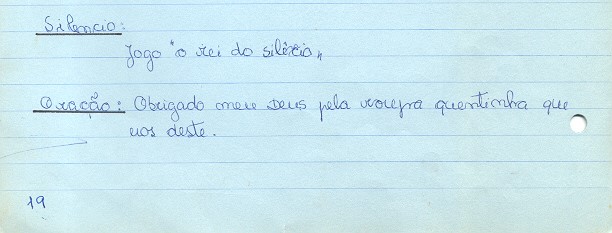 Silencio:
Jogo "o rei do silêncio„
Oração: Obrigado meu Deus pela roupa quentinha que
nos deste.
19